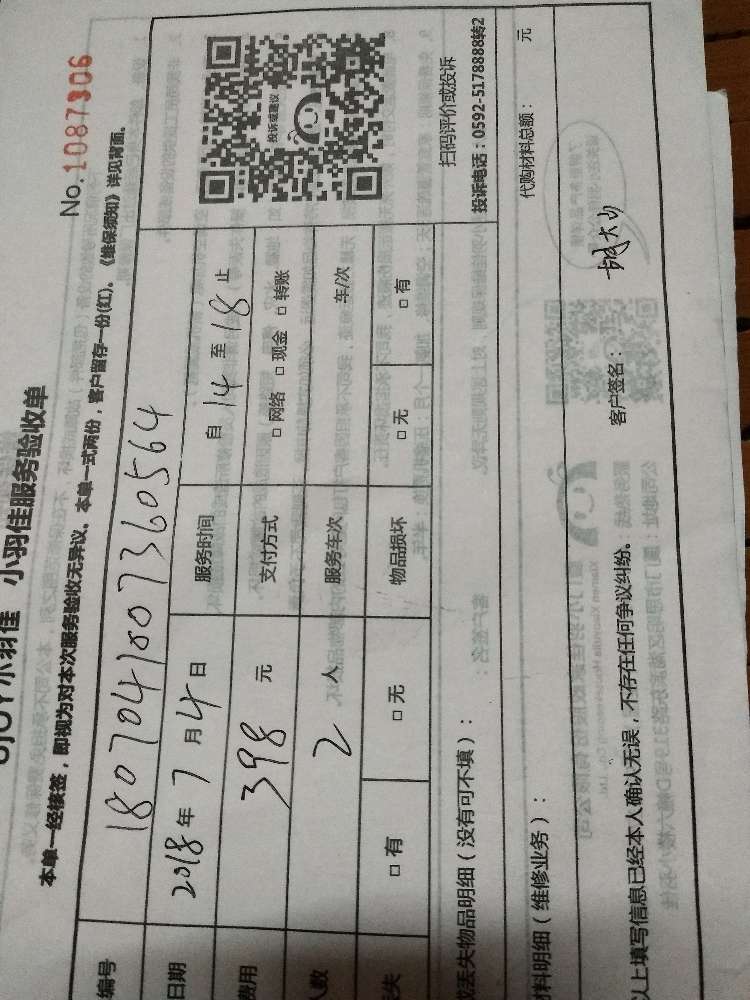 小羽佳 小羽佳服务验收单
No.:1087306
本单一经核签，即视为对本次服务验收无异议。本单一式两份，客户留存一份(红)。《维保须知》详见背面。
编号 1807041007360564
日期 2018年7月4日 服务时间 自 14 至 18 止
费用 398 元 支付方式 □ 网络 □ 现金 □ 转账
人数 2 人 服务车次 车/次
失 □ 有 □ 无 物品损坏 □ 无 □ 有
投诉或建议
扫码评价或投诉
投诉电话：0592-5178888转2
丢失物品明细（没有可不填）：
料明细（维修业务）： 代购材料总额： 元
以上填写信息已经本人确认无误，不存在任何争议纠纷。 客户签名：